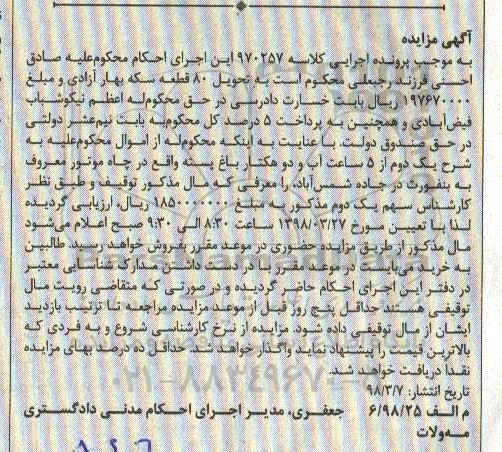 آگهی مزایده
به موجب پرونده اجرایی کلاسه ۹۷۰۲۵۷ این اجرای احکام محکوم‌علیه صادق
احمدی فرزند رجبعلی محکوم است به تحویل ۸۰ قطعه سکه بهار آزادی و مبلغ
۱۹۷۶۷۰۰۰۰ ریال بابت خسارت دادرسی در حق محکوم‌له اعظم نیکوشباب
فیض‌آبادی و همچنین به پرداخت ۵ درصد کل محکوم‌به بابت نیم‌عشر دولتی
در حق صندوق دولت. با عنایت به اینکه محکوم‌له از اموال محکوم‌علیه به
شرح یک دوم از ۵ ساعت آب و دو هکتار باغ پسته واقع در چاه موتور معروف
به بنفورت در جاده شمس‌آباد، را معرفی که مال مذکور توقیف و طبق نظر
کارشناس سهم یک دوم مذکور به مبلغ ۱۸۵۰۰۰۰۰۰۰ ریال، ارزیابی گردیده
لذا با تعیین مورخ ۱۳۹۸/۰۳/۲۷ ساعت ۸:۳۰ الی ۹:۳۰ صبح اعلام می‌شود
مال مذکور از طریق مزایده حضوری در موعد مقرر بفروش خواهد رسید. طالبین
به خرید می‌بایست در موعد مقرر با در دست داشتن مدارک شناسایی معتبر
در دفتر این اجرای احکام حاضر گردیده و در صورتی که متقاضی رویت مال
توقیفی هستند حداقل پنج روز قبل از موعد مزایده مراجعه تا ترتیب بازدید
ایشان از مال توقیفی داده شود. مزایده از نرخ کارشناسی شروع و به فردی که
بالاترین قیمت را پیشنهاد نماید واگذار خواهد شد. حداقل ده درصد بهای مزایده
نقدا دریافت خواهد شد.
تاریخ انتشار: ۹۸/۳/۷
م الف ۶/۹۸/۲۵ جعفری، مدیر اجرای احکام مدنی دادگستری
مه‌ولات
۰۲۱-۸۸۳۴۹۶۷۰